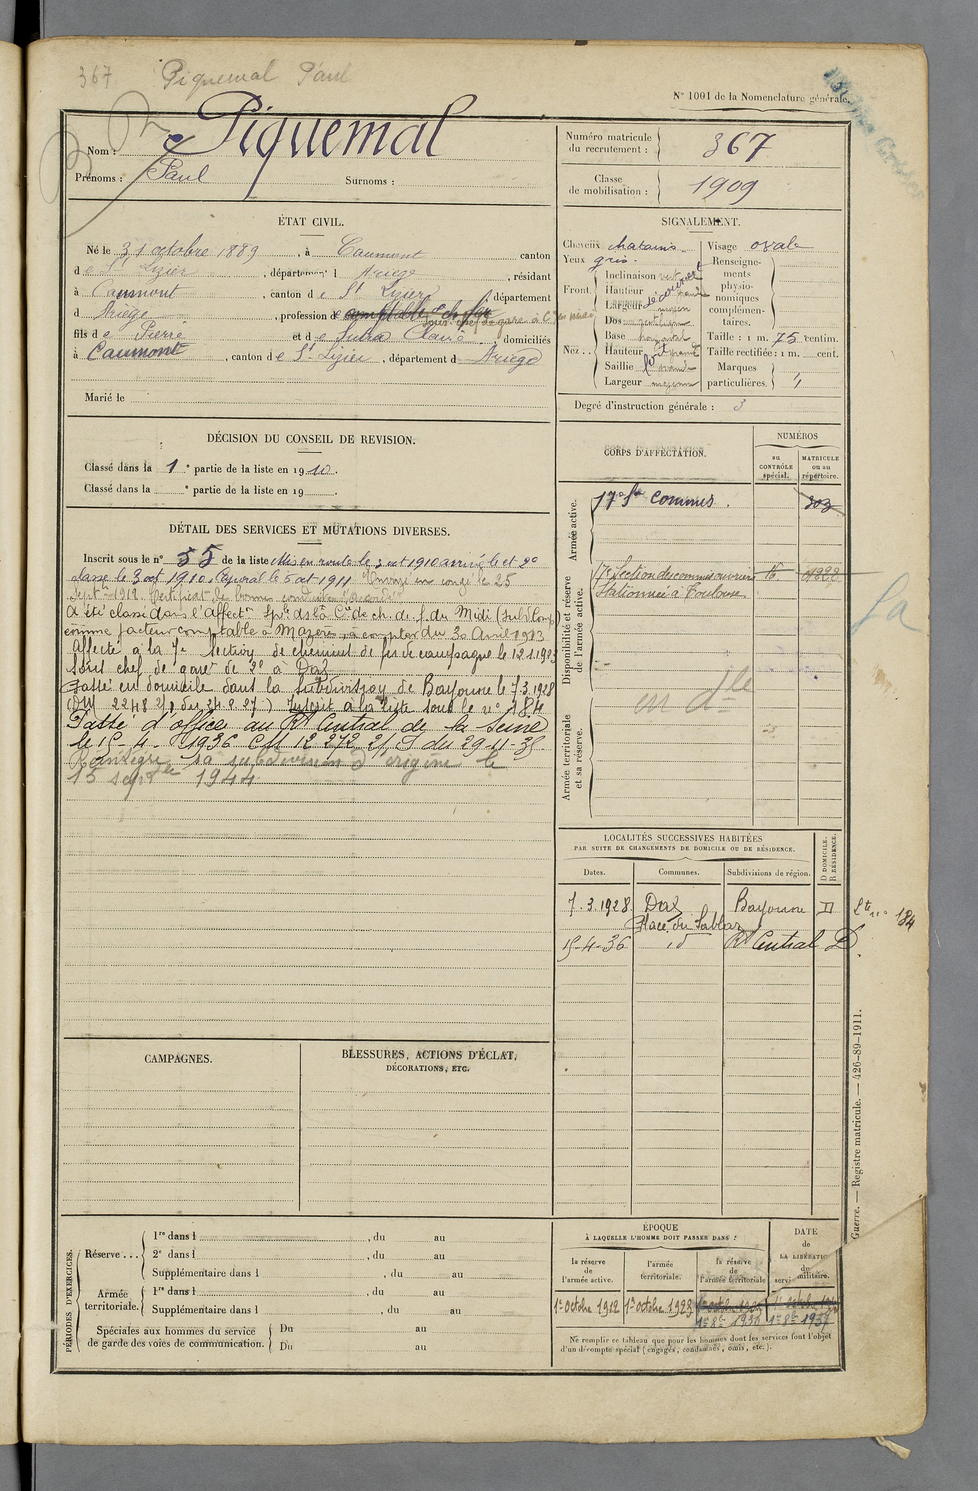 367 Piquemal Paul
N° 1001 de la Nomenclature générale.
Nom : Piquemal
Prénoms : Paul Surnoms :
Numéro matricule du recrutement : 367
Classe de mobilisation : 1909
ÉTAT CIVIL.
Né le 31 octobre 1889, à Caumont canton
de St Lizier, département d Ariège, résidant
à Caumont, canton de St Lizier, département
d Ariège, profession de comptable ch. de fer
sous chef de gare à
fils de Pierre et de Claire domiciliés
à Caumont, canton de St Lizier, département d Ariège
Marié le
SIGNALEMENT.
Cheveux chatains
Yeux gris.
Front. Inclinaison vert
Hauteur
Largeur
Nez.. Dos
Base horizontal
Hauteur
Saillie
Largeur moyenne
Visage ovale
Renseignements physionomiques complémentaires.
Taille : 1 m. 75 centim.
Taille rectifiée : 1 m. cent.
Marques particulières.
Degré d'instruction générale : 3
DÉCISION DU CONSEIL DE REVISION.
Classé dans la 1e partie de la liste en 1910.
Classé dans la e partie de la liste en 19
DÉTAIL DES SERVICES ET MUTATIONS DIVERSES.
Inscrit sous le n° 55 de la liste Mis en route le 3 oct 1910 arrivé le et 2e
classe le 3 oct 1910. Caporal le 5 oct 1911 Envoyé en congé le 25
Sept. 1912. Certificat de bonne conduite accordé
A été classé dans l'affectn sple ds la Cie de ch. de f. du Midi
comme facteur comptable à Mazères, à compter du 30 Avril 1913
Affecté à la 7e Section de chemins de fer de campagne le 12.1.1923
Sous chef de gare de 2e à Dax
Passé en domicile dans la subdivision de Bayonne le 7.3.1928
Inscrit à la liste sous le n° 184
Passé d'office au Rt Central de la Seine
le 15-4-1936 CM 12 272 du 29-11-35
Réintègre sa subdivision d'origine le
15 septbre 1944
CORPS D'AFFECTATION.
NUMÉROS
au CONTRÔLE spécial.
MATRICULE ou au répertoire.
Armée active.
17e Son Commis. 303
Disponibilité et réserve de l'armée active.
17e Section des commis ouvriers
Stationnée à Toulouse
Armée territoriale et sa réserve.
LOCALITÉS SUCCESSIVES HABITÉES
PAR SUITE DE CHANGEMENTS DE DOMICILE OU DE RÉSIDENCE.
Dates. Communes. Subdivisions de région. D DOMICILE. R RÉSIDENCE.
7.3.1928 Dax Bayonne D Lte n° 184
Place du Sablar
15-4-36 id Rt Central D.
CAMPAGNES.
BLESSURES, ACTIONS D'ÉCLAT,
DÉCORATIONS, ETC.
Guerre. — Registre matricule. — 426-89-1911.
PÉRIODES D'EXERCICES.
Réserve... 1re dans l , du au
2e dans l , du au
Supplémentaire dans l , du au
Armée territoriale. 1re dans l , du au
Supplémentaire dans l , du au
Spéciales aux hommes du service de garde des voies de communication. Du au
Du au
ÉPOQUE
À LAQUELLE L'HOMME DOIT PASSER DANS :
la réserve de l'armée active.
l'armée territoriale.
la réserve de l'armée territoriale
DATE de LA LIBÉRATION du service militaire.
1er octobre 1912 1er octobre 1923
Ne remplir ce tableau que pour les hommes dont les services font l'objet
d'un décompte spécial (engagés, condamnés, omis, etc.).